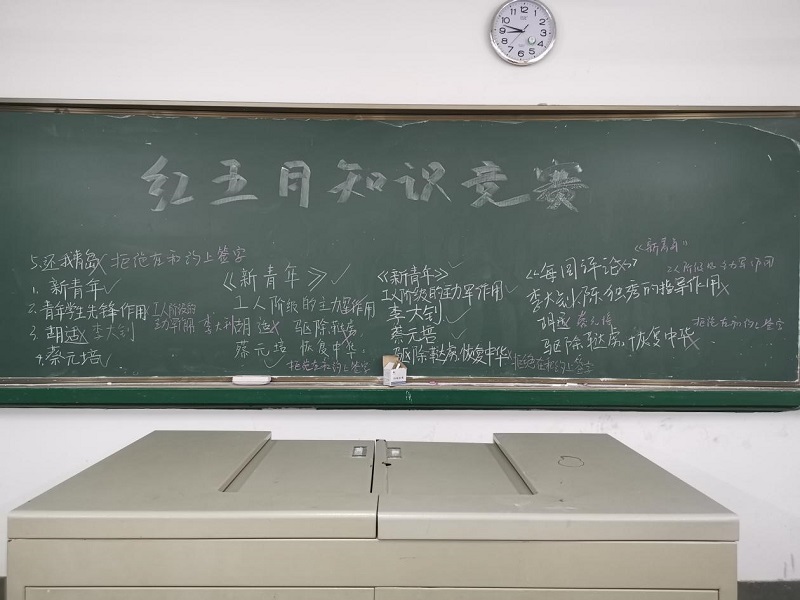 红五月知识竞赛
5.还我青岛 拒绝在和约上签字
1.新青年
2.青年学生先锋作用 工人阶级的主力军作用
3.胡适 李大钊
4.蔡元培
《新青年》
工人阶级的主力军作用
李大钊 胡适 驱除鞑虏
蔡元培 恢复中华
拒绝在和约上签字
《新青年》
工人阶级的主力军作用
李大钊
蔡元培
驱除鞑虏,恢复中华 拒绝在和约上签字
《新青年》
《每周评论》
工人阶级的主力军作用
李大钊.陈独秀的指导作用
胡适 蔡元培
驱除鞑虏,恢复中华 拒绝在和约上签字